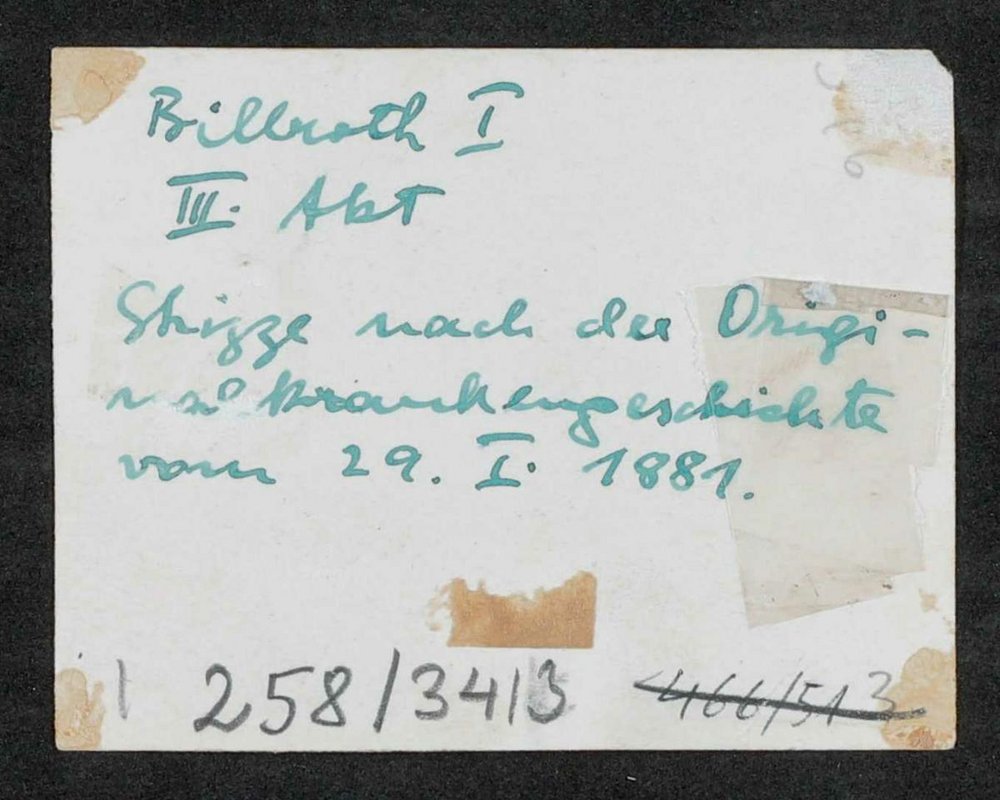 Billroth I
III. Akt
Skizze nach der Origi-
nalkrankengeschichte
vom 29. I. 1881.
258/34/3
466/51 3